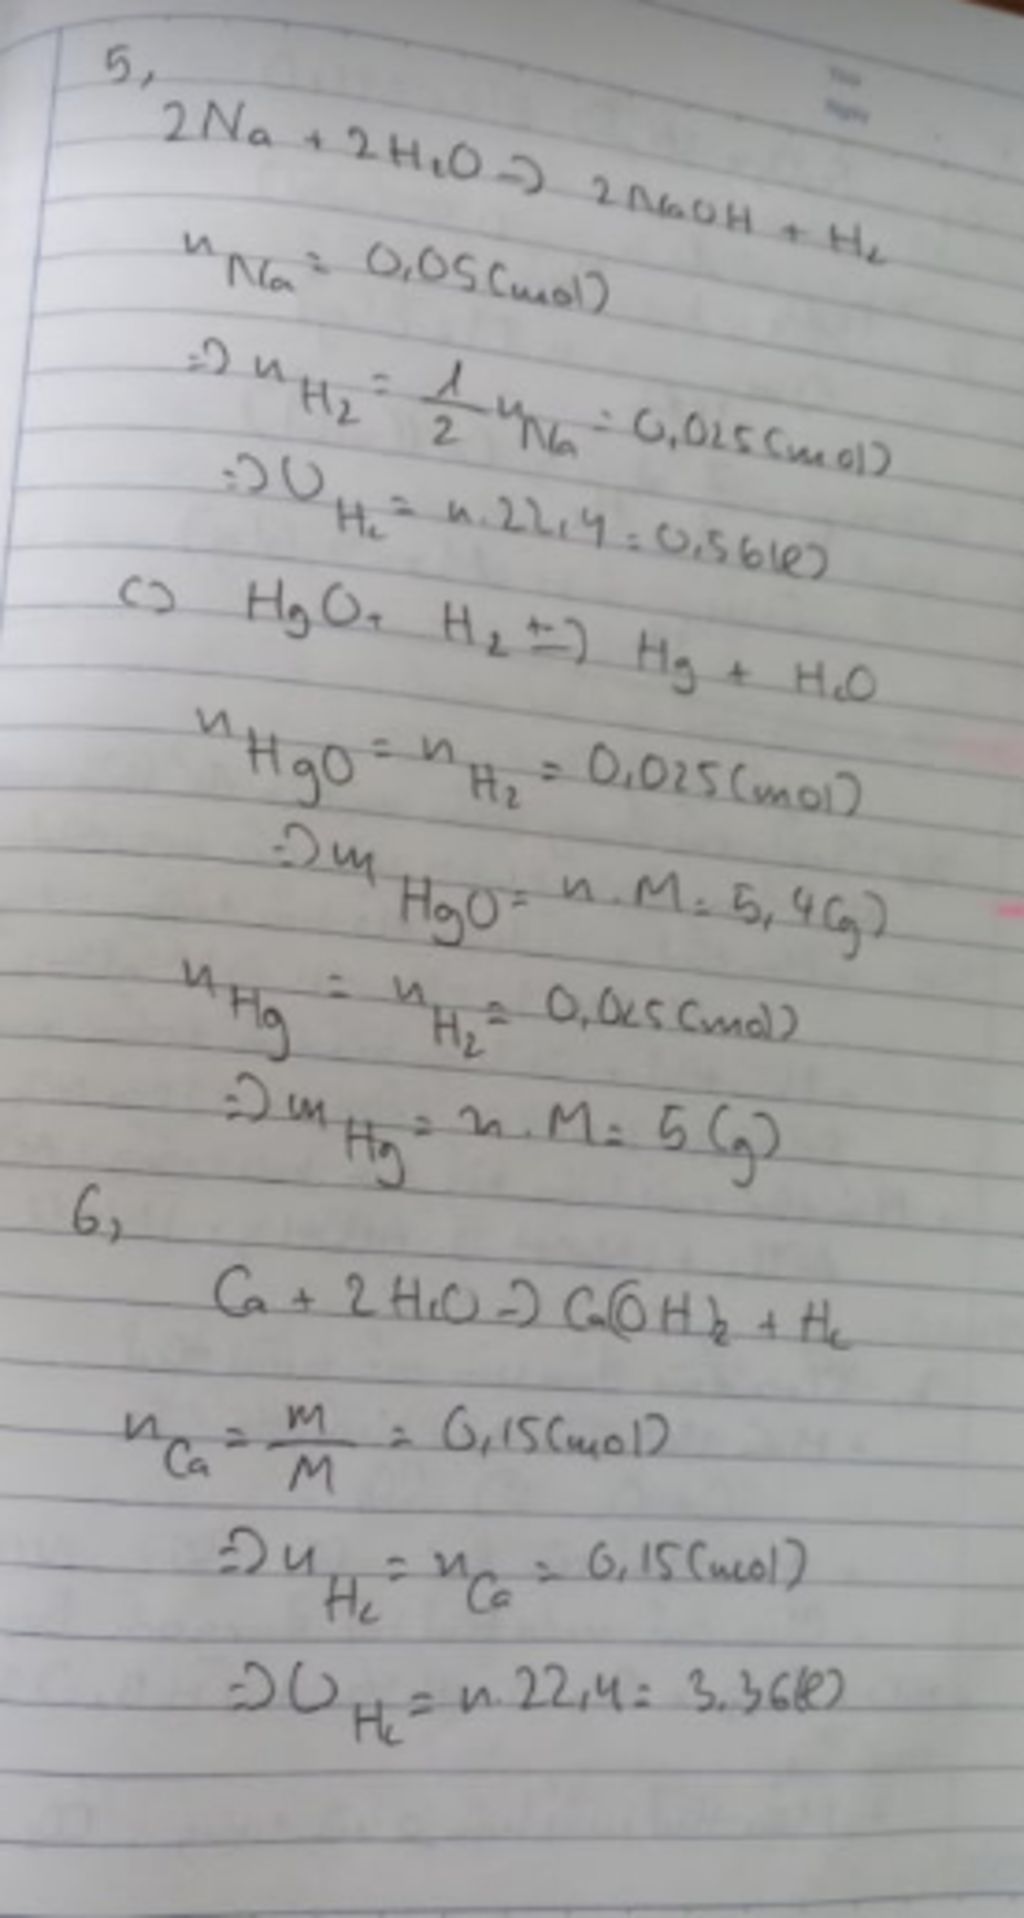 5,
2Na + 2H₂O => 2NaOH + H₂
n Na = 0,05(mol)
=> n H₂ = 1/2 n Na = 0,025(mol)
=> V H₂ = n.22,4 = 0,56(l)
c) HgO + H₂ => Hg + H₂O
n HgO = n H₂ = 0,025(mol)
=> m HgO = n.M = 5,4(g)
n Hg = n H₂ = 0,025(mol)
=> m Hg = n.M = 5(g)
6,
Ca + 2H₂O => Ca(OH)₂ + H₂
n Ca = m/M = 0,15(mol)
=> n H₂ = n Ca = 0,15(mol)
=> V H₂ = n.22,4 = 3.36(l)